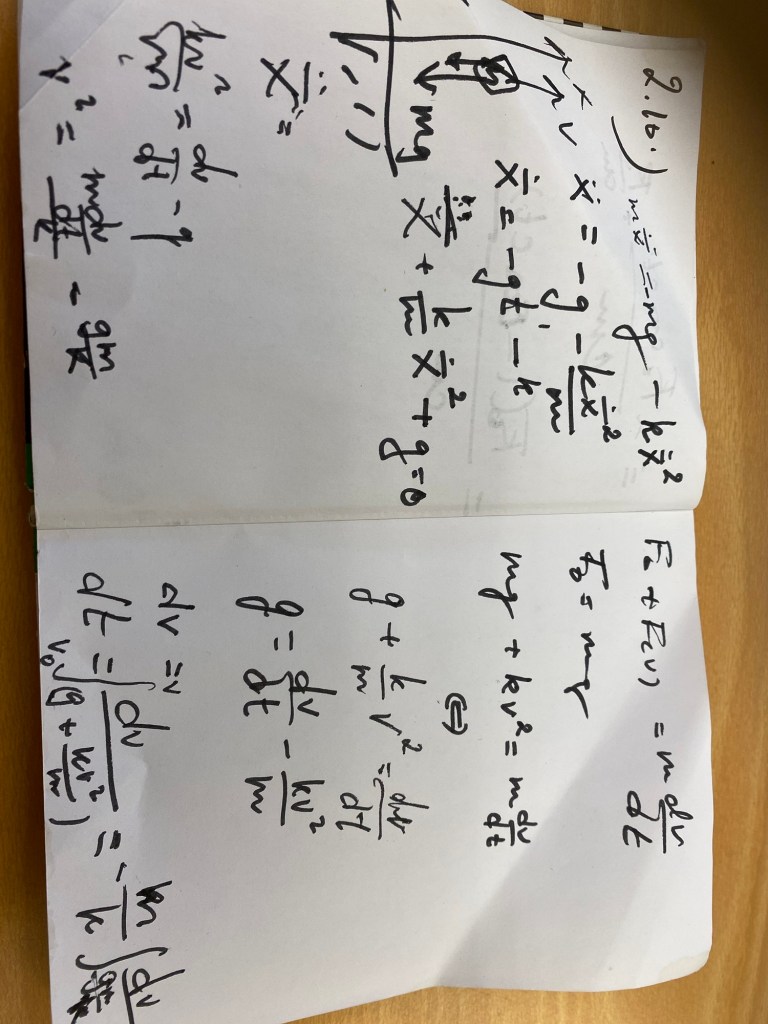 2.16.) mẍ = -mg - kẋ²
x
v ẍ = -g - kẋ²/m
ẋ = -gt - k
mg
ẍ + k/m ẋ² + g = 0
ẍ =
kv²/m = dv/dt - g
v² = mdv/dt k - gm/k
F₀ + F(v) = m dv/dt
F₀ = mg
mg + kv² = m dv/dt
⇔
g + k/m v² = dv/dt
g = dv/dt - kv²/m
dv =
dt = ∫ᵥ₀ᵛ dv/(g + kv²/m) = - m/k ∫ dv